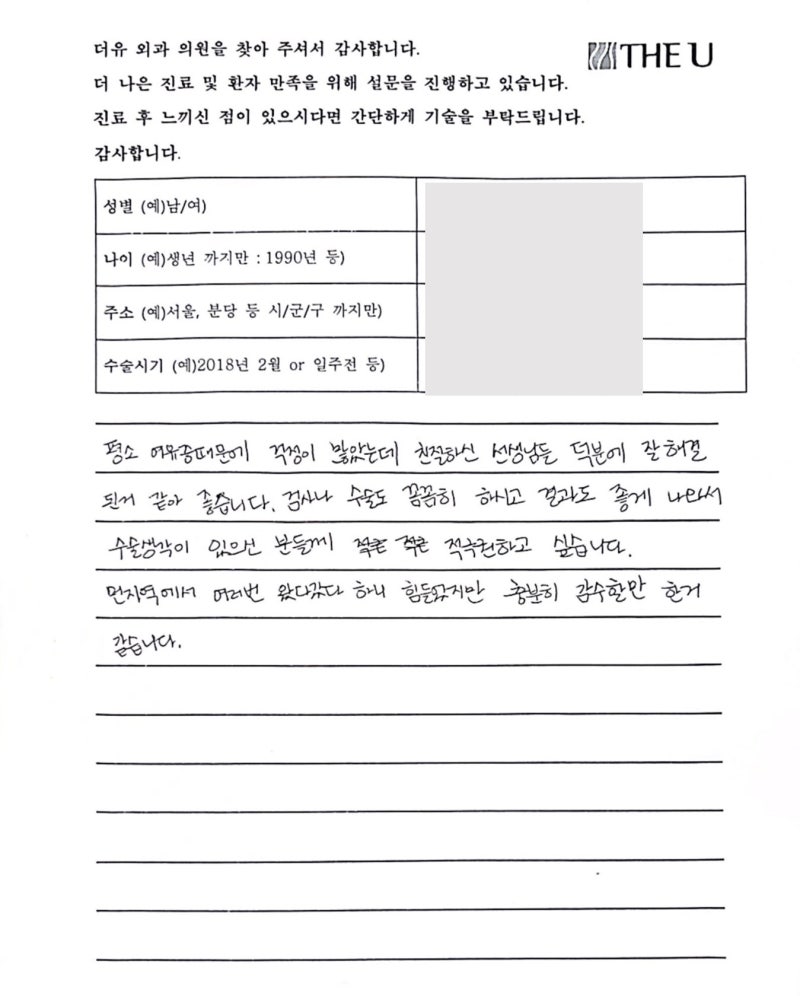 더유 외과 의원을 찾아 주셔서 감사합니다.
THE U
더 나은 진료 및 환자 만족을 위해 설문을 진행하고 있습니다.
진료 후 느끼신 점이 있으시다면 간단하게 기술을 부탁드립니다.
감사합니다.
성별 (예)남/여)
나이 (예)생년 까지만 : 1990년 등)
주소 (예)서울, 분당 등 시/군/구 까지만)
수술시기 (예)2018년 2월 or 일주전 등)
평소 여유증때문에 걱정이 많았는데 친절하신 선생님들 덕분에 잘 해결
된거 같아 좋습니다. 검사나 수술도 꼼꼼히 하시고 결과도 좋게 나와서
수술생각이 있으신 분들께 적극권하고 싶습니다.
먼지역에서 여러번 왔다갔다 하니 힘들었지만 충분히 감수할만 한거
같습니다.